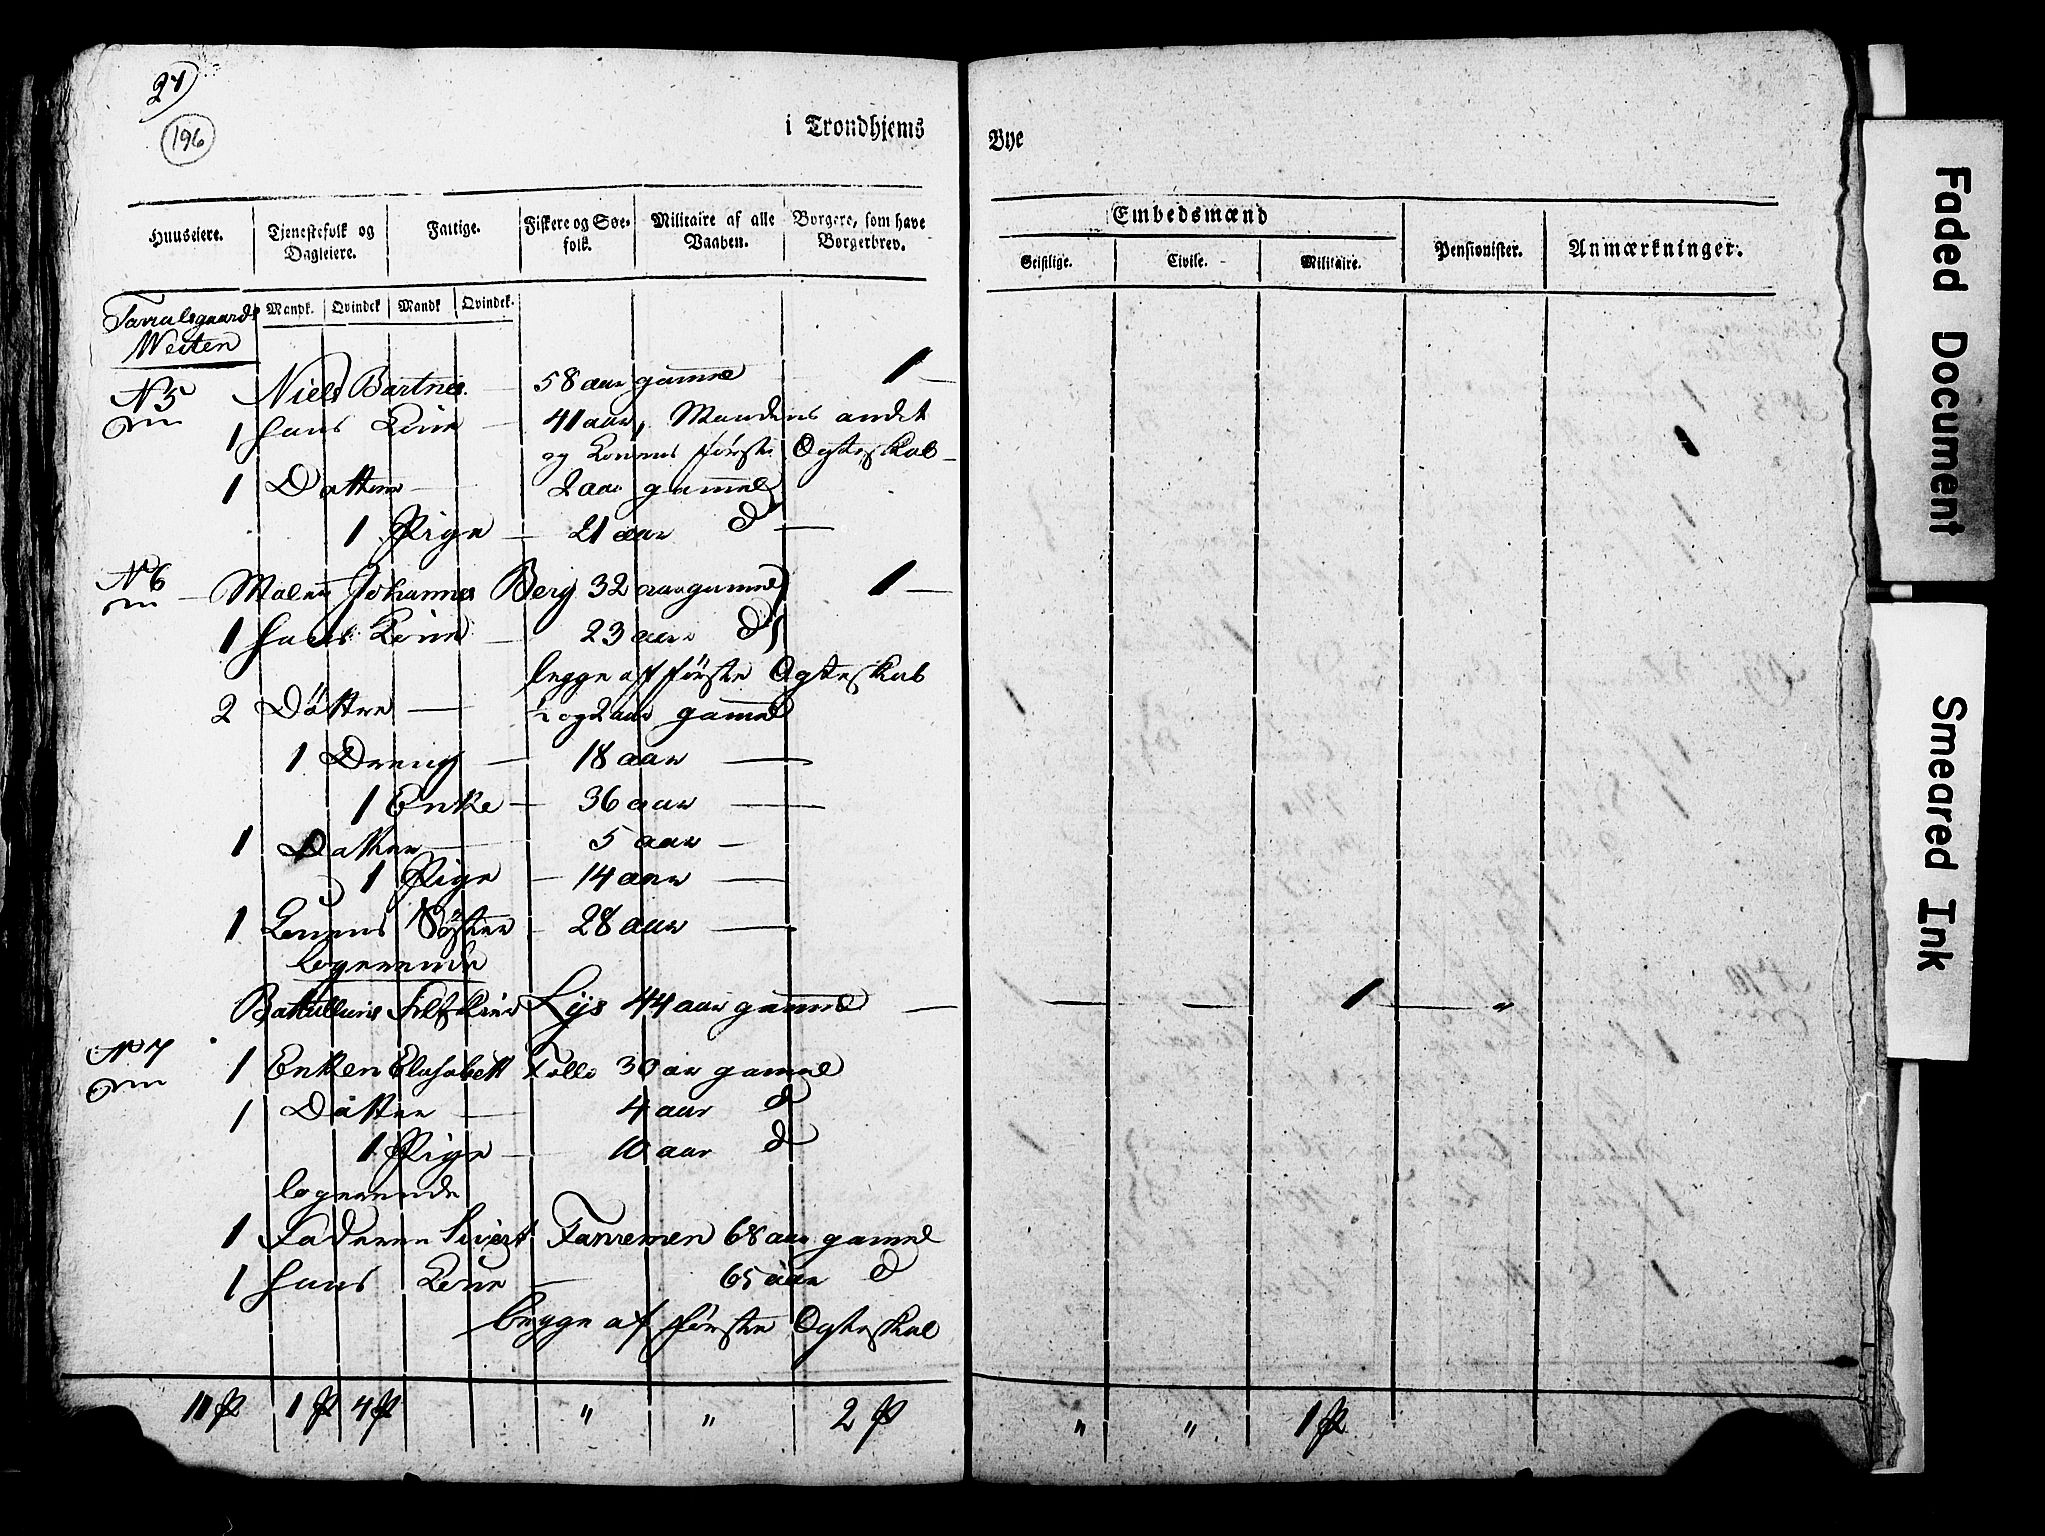 27)
196
i Trondhjems Bye
Huuseiere. Tjenestefolk og Dagleiere. Fattige. Fiskere og Søe-folk. Militaire af alle Vaaben. Borgere, som have Borgerbrev. Embedsmænd Pensionister. Anmærkninger.
Geistlige. Civile. Militaire.
Mandk. Qvindek Mandk Qvindek.
Tavralsgaards
Weiten
N 5 Niels Bartnes 58 aar gamel 1
1 Hans Kone 41 aar, Mandens andet
og Konens første Ogteskab
1 Datter 2 aar gammel
1 Pige 21 aar d
N 6 Maler Johannes Berg 32 aar gamel 1
1 Hans Kone 23 aar d
begge af første Ogteskab
2 Döttre ½ og 2 aar gamel
1 Dreng 18 aar
1 Enke 36 aar
1 Datter 5 aar
1 Pige 14 aar
1 Konens Söster 28 aar
logerende
Battallions Lys 44 aar gamel 1 "
N 7 1 Enken Elisabett Tolle 30 aar gamel
1 Dötter 4 aar d
1 Pige 10 aar d
logerende
1 Faderen Sivert 68 aar gamel
1 Hans Kone 65 aar d
begge af første Ogteskab
11 P 1 P 4 P " " 2 P " " 1 P
Faded Document
Smeared Ink